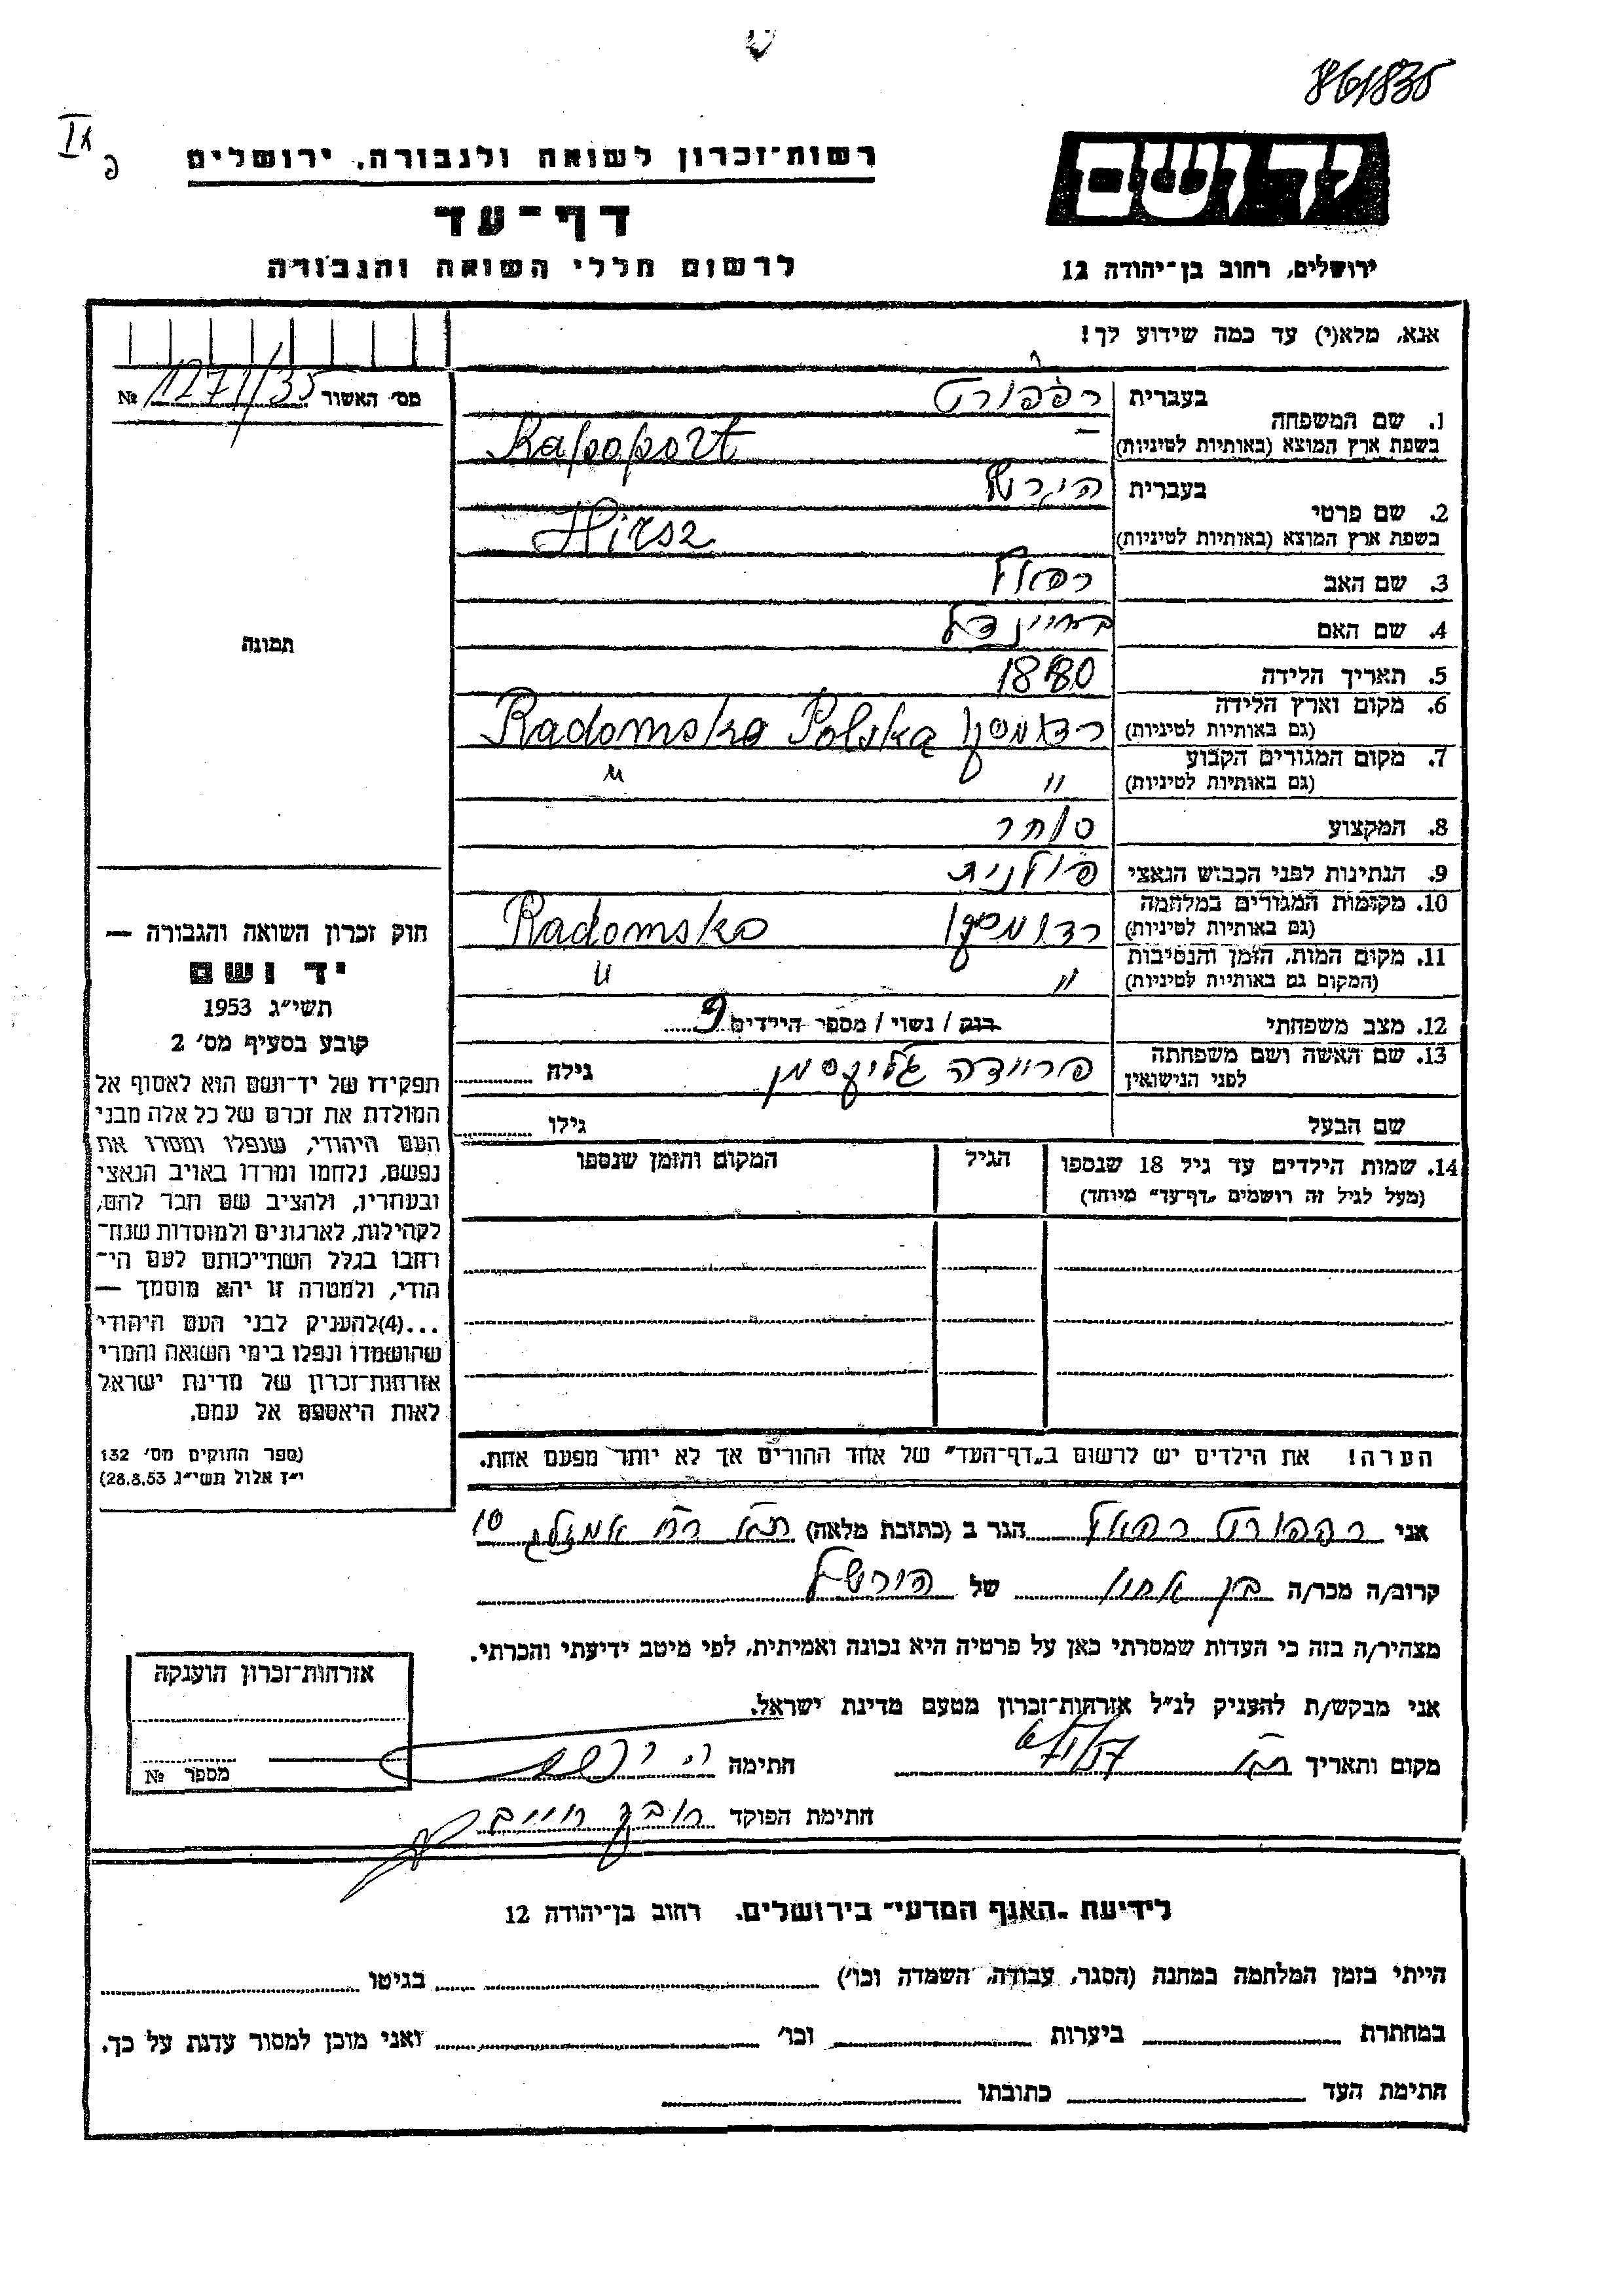 861835
IX
פ
רשות־זכרון לשואה ולגבורה, ירושלים
יד ושם
דף־עד
לרשום חללי השואה והגבורה
ירושלים, רחוב בן־יהודה 12
אנא, מלא(י) עד כמה שידוע לך!
מס׳ האשור 1271/35 №
1. שם המשפחה
בעברית רפפורט
בשפת ארץ המוצא (באותיות לטיניות) Rapoport
2. שם פרטי
בעברית הירש
בשפת ארץ המוצא (באותיות לטיניות) Hirsz
3. שם האב רפאל
4. שם האם
5. תאריך הלידה 1880
6. מקום וארץ הלידה
(גם באותיות לטיניות) רדומסקו Radomsko Polska
7. מקום המגורים הקבוע
(גם באותיות לטיניות) " "
8. המקצוע סוחר
9. הנתינות לפני הכבוש הנאצי פולנית
10. מקומות המגורים במלחמה
(גם באותיות לטיניות) רדומסקו Radomsko
11. מקום המות, הזמן והנסיבות
(המקום גם באותיות לטיניות) " "
12. מצב משפחתי רוק / נשוי / מספר הילדים 9
13. שם האשה ושם משפחתה
לפני הנישואין פריידה גליקסמן גילה
שם הבעל גילו
14. שמות הילדים עד גיל 18 שנספו
(מעל לגיל זה רושמים „דף־עד” מיוחד)
הגיל
המקום והזמן שנספו
תמונה
חוק זכרון השואה והגבורה —
יד ושם
תשי״ג 1953
קובע בסעיף מס׳ 2
תפקידו של יד־ושם הוא לאסוף אל
המולדת את זכרם של כל אלה מבני
העם היהודי, שנפלו ומסרו את
נפשם, נלחמו ומרדו באויב הנאצי
ובעוזריו, ולהציב שם וזכר להם,
לקהילות, לארגונים ולמוסדות שנח־
רבו בגלל השתייכותם לעם הי־
הודי, ולמטרה זו יהא מוסמך —
...(4) להעניק לבני העם היהודי
שהושמדו ונפלו בימי השואה והמרי
אזרחות־זכרון של מדינת ישראל
לאות היאספם אל עמם.
(ספר החוקים מס׳ 132
י״ז אלול תשי״ג 28.8.53)
הערה! את הילדים יש לרשום ב„דף־העד” של אחד ההורים אך לא יותר מפעם אחת.
אני רפפורט רפאל הגר ב (כתובת מלאה) ת״א רח׳ 10
קרוב/ה מכר/ה בן אחיו של הירשל
מצהיר/ה בזה כי העדות שמסרתי כאן על פרטיה היא נכונה ואמיתית, לפי מיטב ידיעתי והכרתי.
אני מבקש/ת להעניק לנ״ל אזרחות־זכרון מטעם מדינת ישראל.
מקום ותאריך ת״א חתימה
חתימת הפוקד
אזרחות־זכרון הוענקה
מספר №
לידיעת „האגף המדעי” בירושלים, רחוב בן־יהודה 12
הייתי בזמן המלחמה במחנה (הסגר, עבודה, השמדה וכו׳) בגיטו
במחתרת ביערות וכו׳ ואני מוכן למסור עדות על כך.
חתימת העד כתובתו